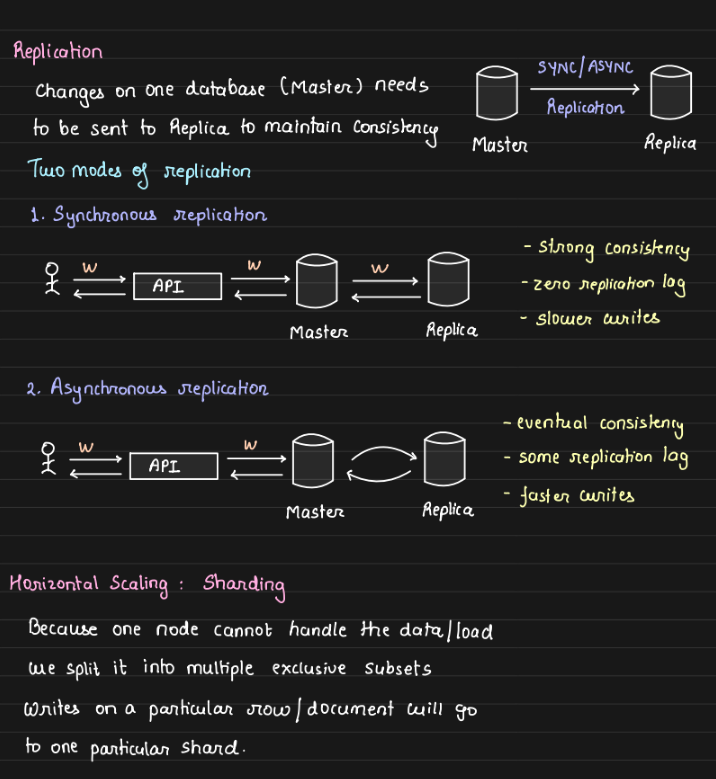 Replication
Changes on one database (Master) needs
to be sent to Replica to maintain Consistency
SYNC/ASYNC
Replication
Master
Replica
Two modes of replication
1. Synchronous replication
W
W
W
API
Master
Replica
- strong consistency
- zero replication lag
- slower writes
2. Asynchronous replication
W
W
API
Master
Replica
- eventual consistency
- some replication lag
- faster writes
Horizontal Scaling : Sharding
Because one node cannot handle the data/load
we split it into multiple exclusive subsets
Writes on a particular row/document will go
to one particular shard.